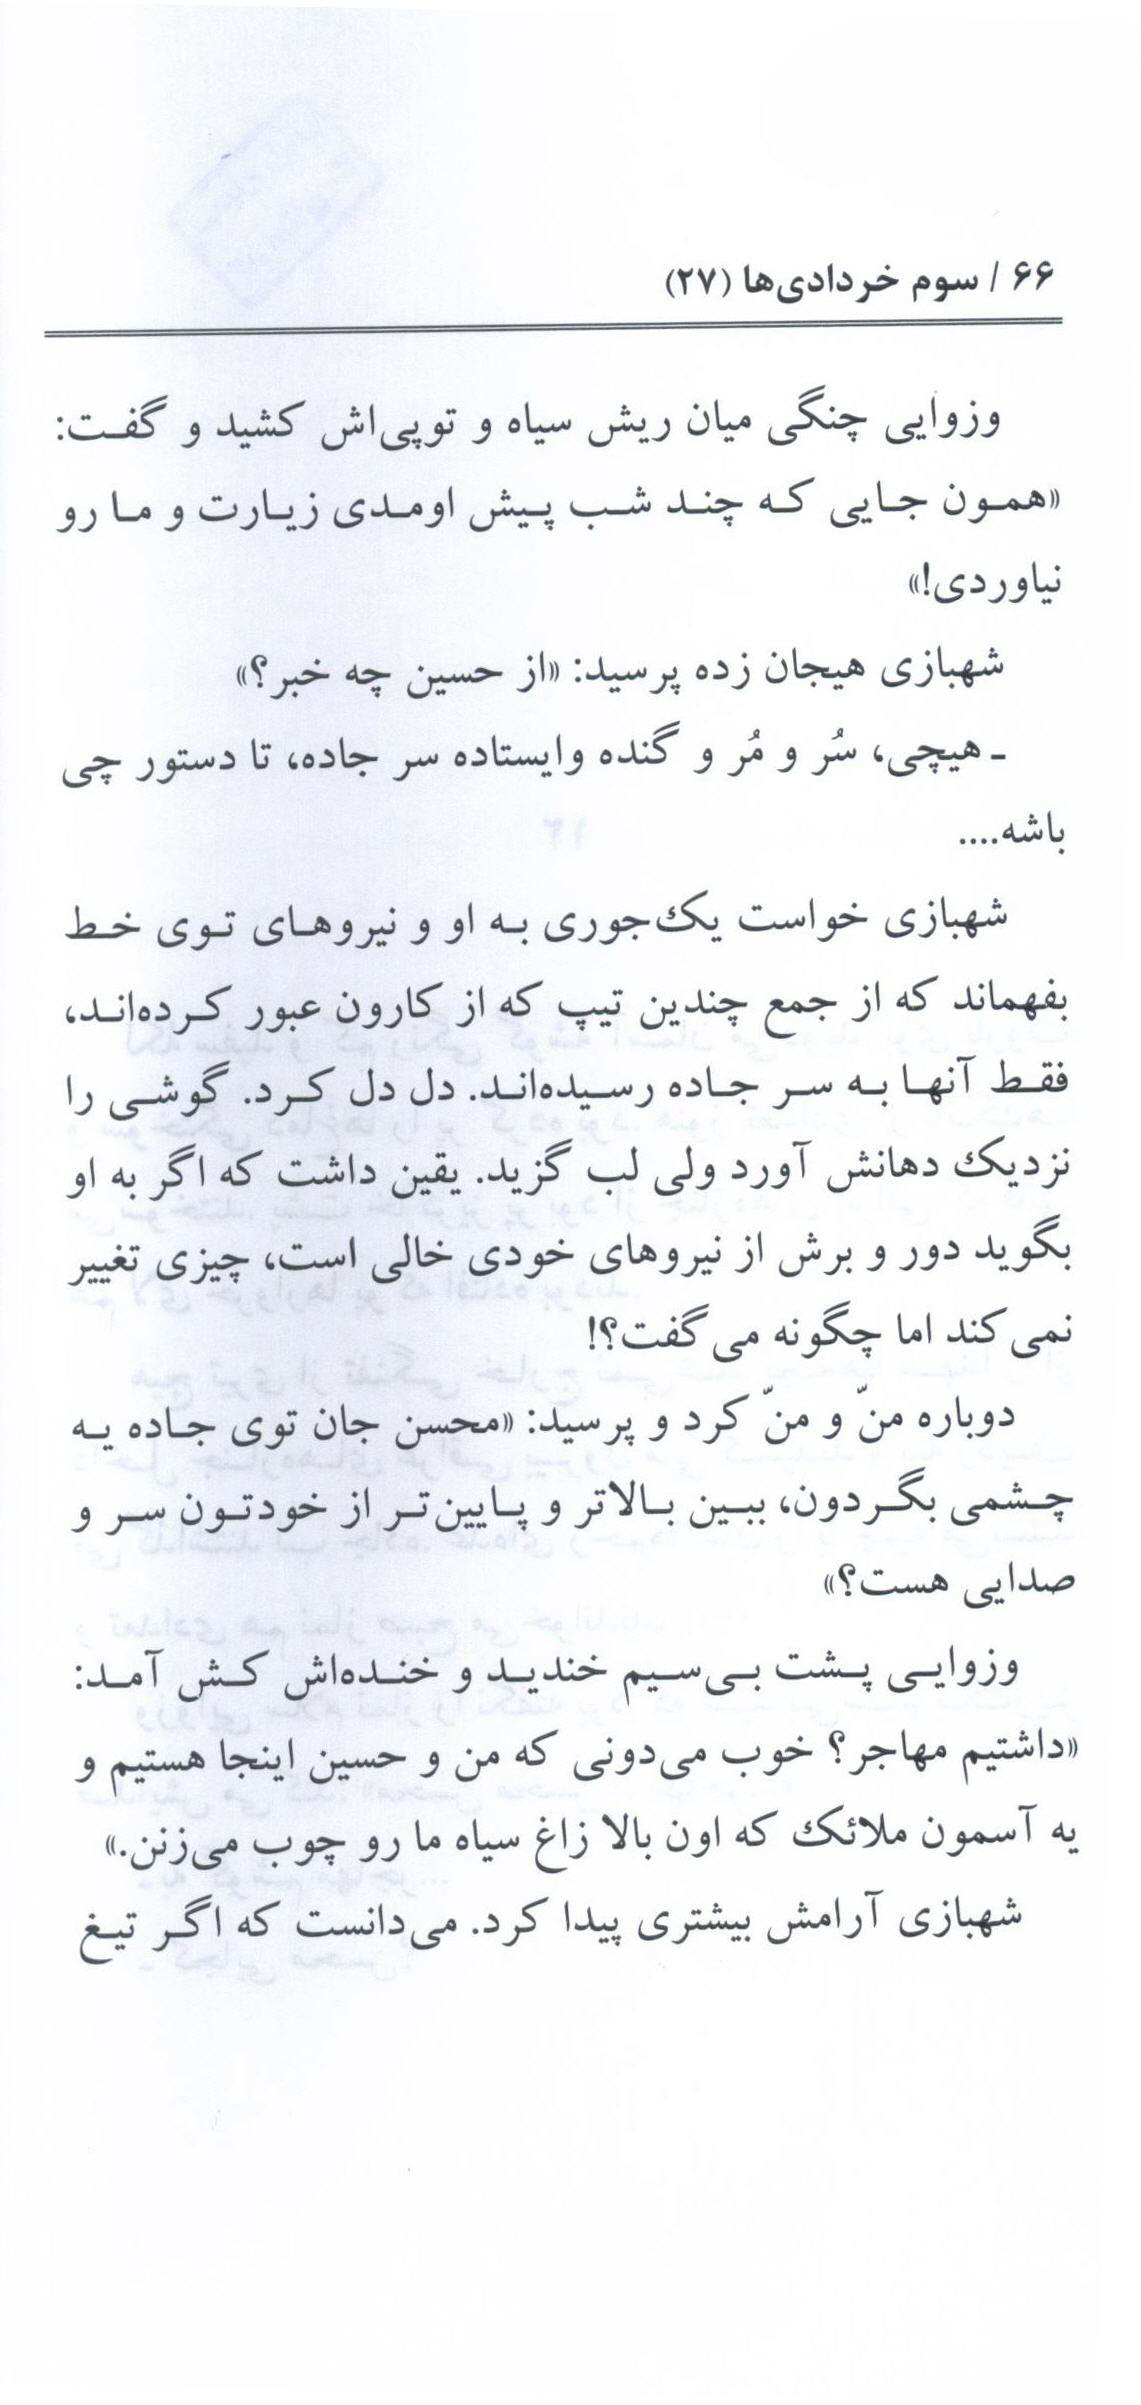 ۶۶ / سوم خردادی‌ها (۲۷)
وزوایی چنگی میان ریش سیاه و توپی‌اش کشید و گفت:
«همون جایی که چند شب پیش اومدی زیارت و ما رو
نیاوردی!»
شهبازی هیجان زده پرسید: «از حسین چه خبر؟»
ـ هیچی، سُر و مُر و گنده وایستاده سر جاده، تا دستور چی
باشه....
شهبازی خواست یک‌جوری به او و نیروهای توی خط
بفهماند که از جمع چندین تیپ که از کارون عبور کرده‌اند،
فقط آنها به سر جاده رسیده‌اند. دل دل کرد. گوشی را
نزدیک دهانش آورد ولی لب گزید. یقین داشت که اگر به او
بگوید دور و برش از نیروهای خودی خالی است، چیزی تغییر
نمی‌کند اما چگونه می‌گفت؟!
دوباره منّ و منّ کرد و پرسید: «محسن جان توی جاده یه
چشمی بگردون، ببین بالاتر و پایین‌تر از خودتون سر و
صدایی هست؟»
وزوایی پشت بی‌سیم خندید و خنده‌اش کش آمد:
«داشتیم مهاجر؟ خوب می‌دونی که من و حسین اینجا هستیم و
یه آسمون ملائک که اون بالا زاغ سیاه ما رو چوب می‌زنن.»
شهبازی آرامش بیشتری پیدا کرد. می‌دانست که اگر تیغ